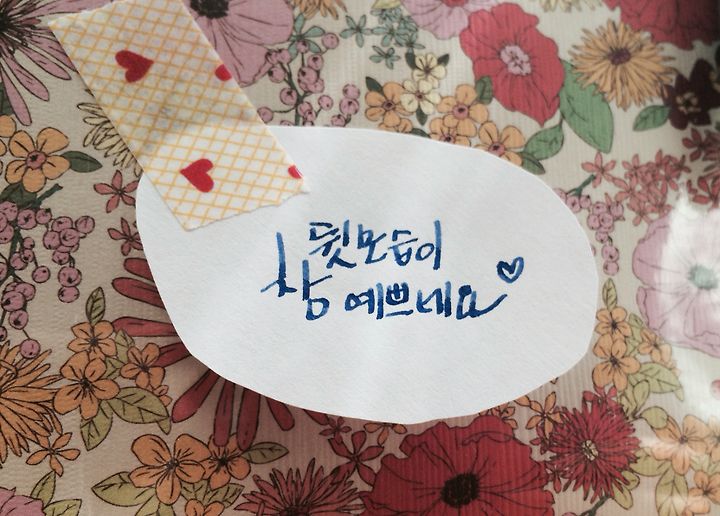 뒷모습이
참 예쁘네요♡